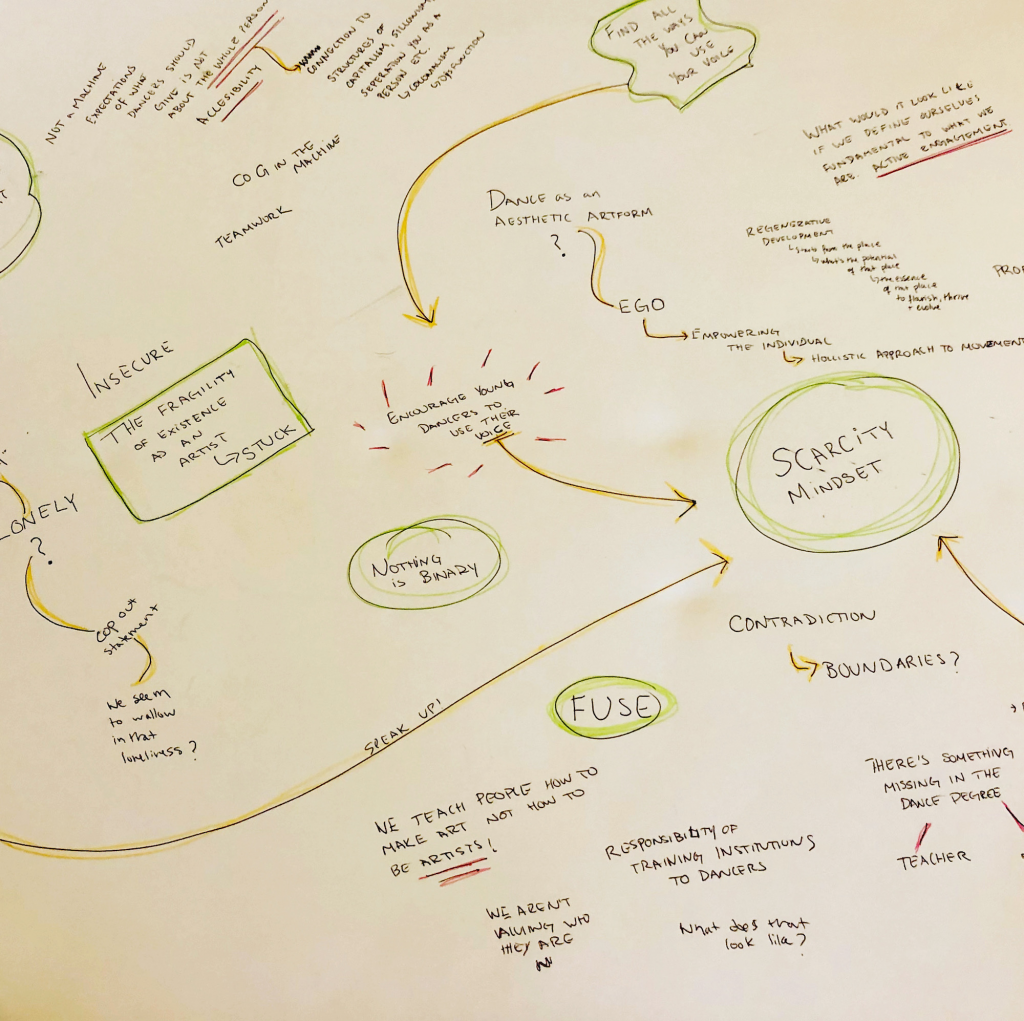 NOT A MACHINE
EXPECTATIONS
OF WHAT
DANCERS SHOULD
GIVE IS NOT
ABOUT THE WHOLE PERSON
ACCESIBILITY
CONNECTION TO
STRUCTURES OF
CAPITALISM,
SEPERATION YOU AS A
PERSON ETC.
↳ COLONIALISM
↳ DYSFUNCTION
FIND ALL
THE WAYS
YOU CAN
USE
YOUR VOICE
WHAT WOULD IT LOOK LIKE
IF WE DEFINE OURSELVES
FUNDAMENTAL TO WHAT WE
ARE. ACTIVE ENGAGEMENT
COG IN THE
MACHINE
TEAMWORK
DANCE AS an
AESTHETIC ARTFORM
?
EGO
EMPOWERING
THE INDIVIDUAL
HOLLISTIC APPROACH TO MOVEMENT
REGENERATIVE
DEVELOPMENT
↳ starts from the place
↳ what's the potential
of that place
↳ the essence
of that place
to flourish, thrive
+ evolve
INSECURE
THE FRAGILITY
OF EXISTENCE
AS AN
ARTIST
↳ STUCK
ENCOURAGE YOUNG
DANCERS TO
USE THEIR
VOICE
SCARCITY
MINDSET
LONELY
?
Cop out
statement
We seem
to wallow
in that
loneliness?
NOTHING
IS BINARY
CONTRADICTION
BOUNDARIES?
FUSE
SPEAK UP!
WE TEACH PEOPLE HOW TO
MAKE ART NOT HOW TO
BE ARTISTS!
RESPONSIBILITY OF
TRAINING INSTITUTIONS
TO DANCERS
THERE'S SOMETHING
MISSING IN THE
DANCE DEGREE
TEACHER
WE AREN'T
VALUING WHO
THEY ARE
What does that
look like?